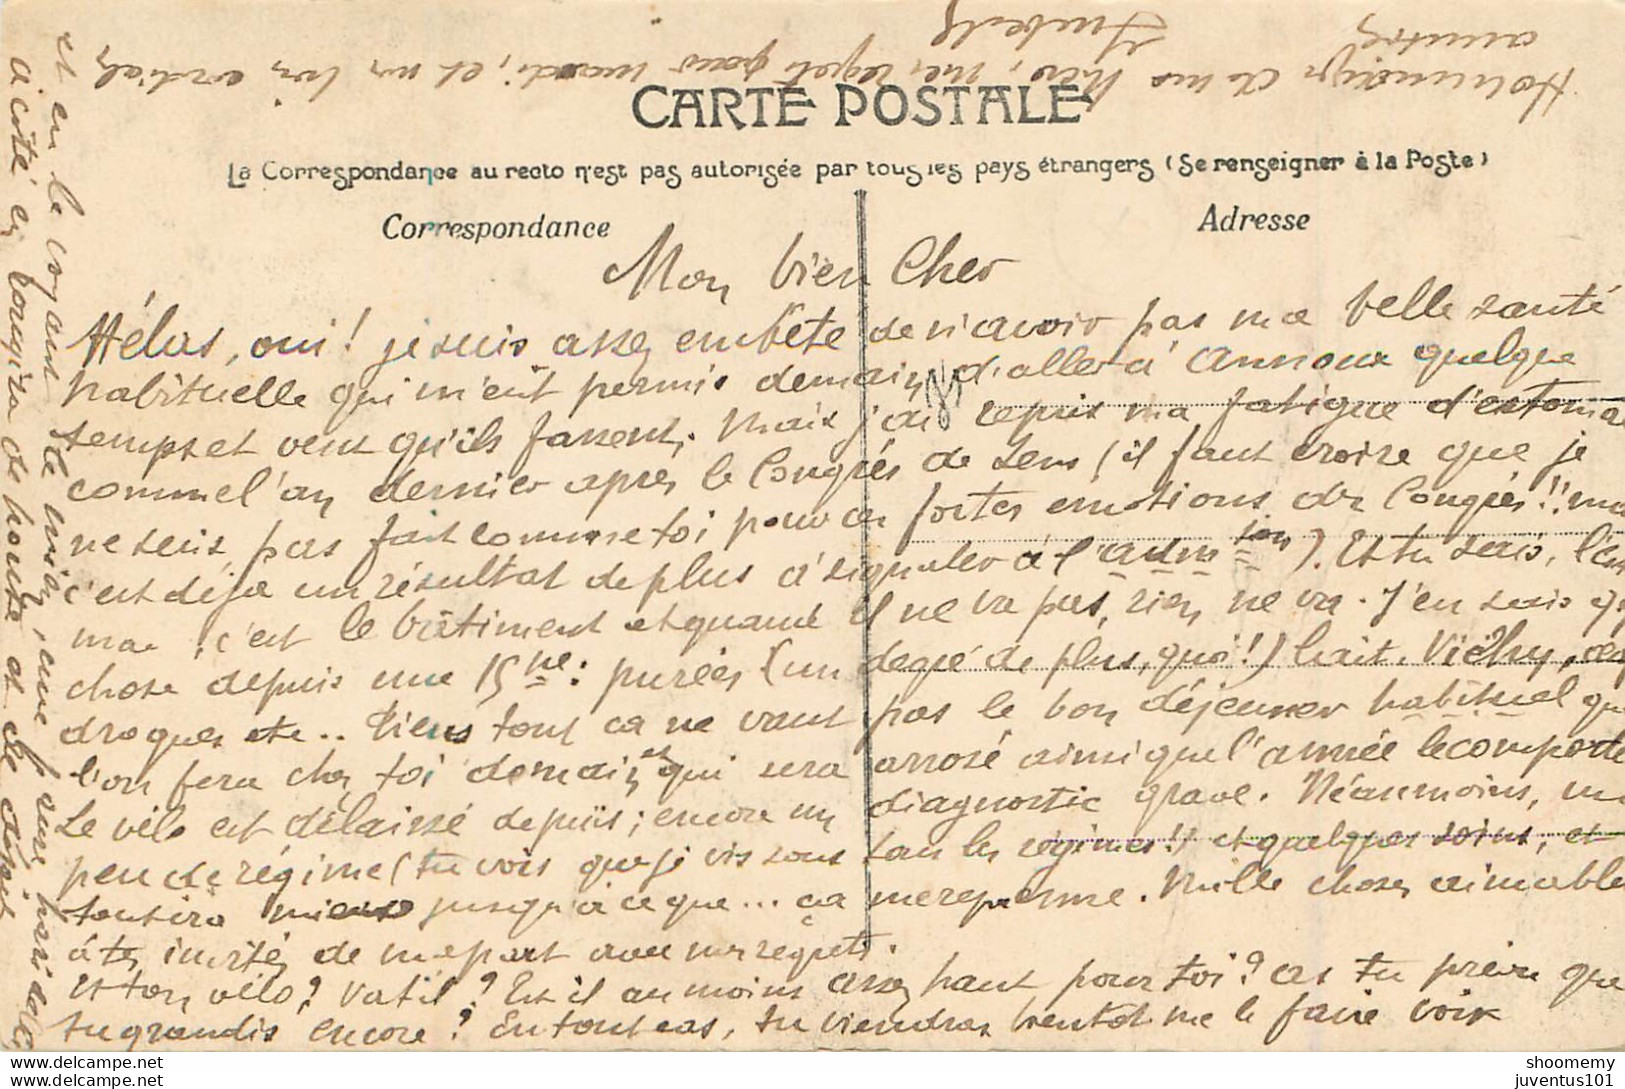 CARTE POSTALE
La Correspondance au recto n'est pas autorisée par tous les pays étrangers (Se renseigner à la Poste)
Correspondance
Adresse
Mon bien Cher
Hélas, oui! je suis assez embêté de n'avoir pas ma belle santé
habituelle qui m'eût permis demain d'aller à Annoux quelque
temps et vent qu'ils fassent. Mais j'ai repris ma fatigue d'estomac
comme l'an dernier après le Congrès de Sens (il faut croire que je
ne suis pas fait comme toi pour ces fortes émotions des Congrès!! mais
c'est déjà un résultat de plus à signaler à l'admston). Et tu sais, l'esto
mac, c'est le bâtiment et quand il ne va pas, rien ne va. J'en sais qq
chose depuis une 15ne: purées (un degré de plus, quoi!) lait, Vichy, des
drogues etc.. Tiens tout ça ne vaut pas le bon déjeuner habituel que
l'on fera chez toi demain et qui sera arrosé ainsi que l'année le comporte
Le vélo est délaissé depuis; encore un diagnostic grave. Néanmoins, un
peu de régime (tu vois que je vis sous tous les régimes!) et quelques soins, et
tout ira mieux jusqu'à ce que... ça me reprenne. Mille choses aimables
à tes invités de ma part avec mes regrets.
Et ton vélo? Va t'il? Est il au moins assez haut pour toi? as tu prévu que
tu grandis encore? En tout cas, tu viendras bientôt me le faire voir
et en le voyant le mien
à côté en rougira de honte et de dépit
Hommages de nous, mes regrets pour mardi, et un bien cordial